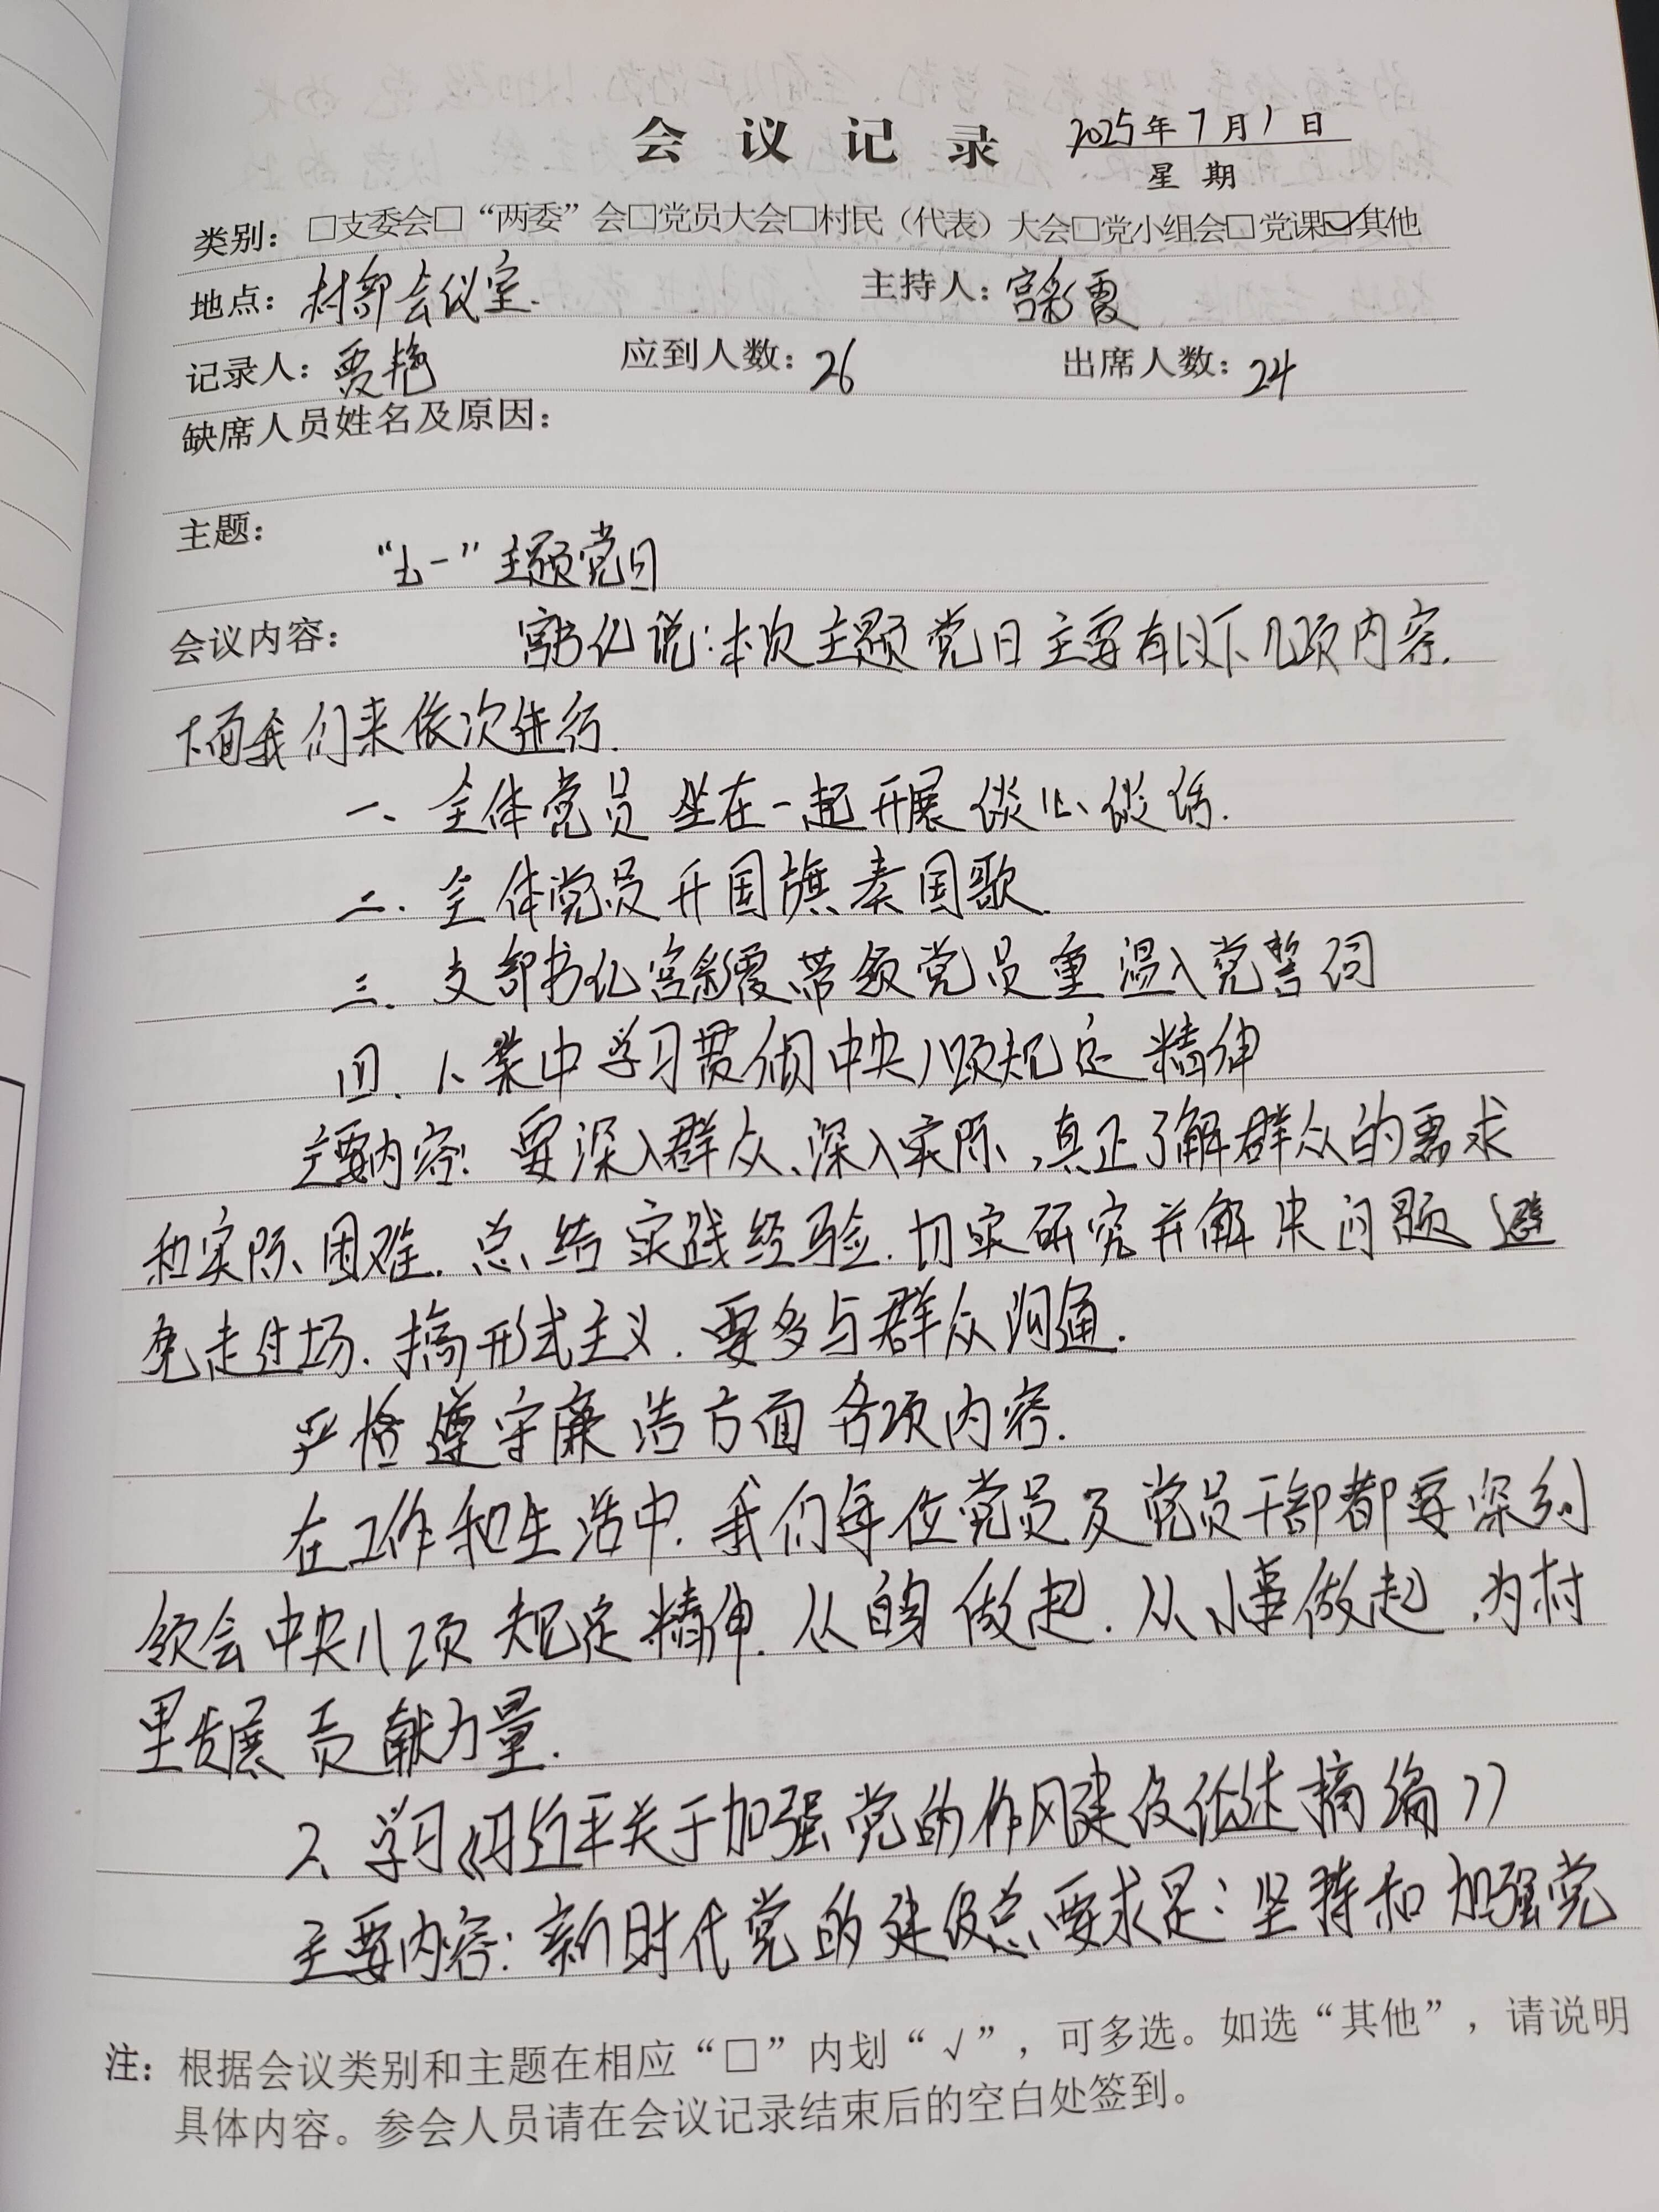 会议记录 2025年7月1日
星期
类别：□支委会□“两委”会□党员大会□村民（代表）大会□党小组会□党课☑其他
地点：村部会议室. 主持人：宫彩霞
记录人：贾艳 应到人数：26 出席人数：24
缺席人员姓名及原因：
主题：
“七一”主题党日
会议内容： 宫书记说：本次主题党日主要有以下几项内容.
下面我们来依次进行.
一、全体党员坐在一起开展谈心谈话.
二、全体党员升国旗奏国歌.
三、支部书记宫彩霞带领党员重温入党誓词
四、1、集中学习贯彻中央八项规定精神
主要内容：要深入群众、深入实际，真正了解群众的需求
和实际困难.总结实践经验.切实研究并解决问题避
免走过场.搞形式主义.要多与群众沟通.
严格遵守廉洁方面各项内容.
在工作和生活中.我们每位党员及党员干部都要深刻
领会中央八项规定精神.从自身做起.从小事做起,为村
里发展贡献力量.
2、学习《习近平关于加强党的作风建设论述摘编》
主要内容：新时代党的建设总要求是：坚持和加强党
注：根据会议类别和主题在相应“□”内划“√”，可多选。如选“其他”，请说明
具体内容。参会人员请在会议记录结束后的空白处签到。